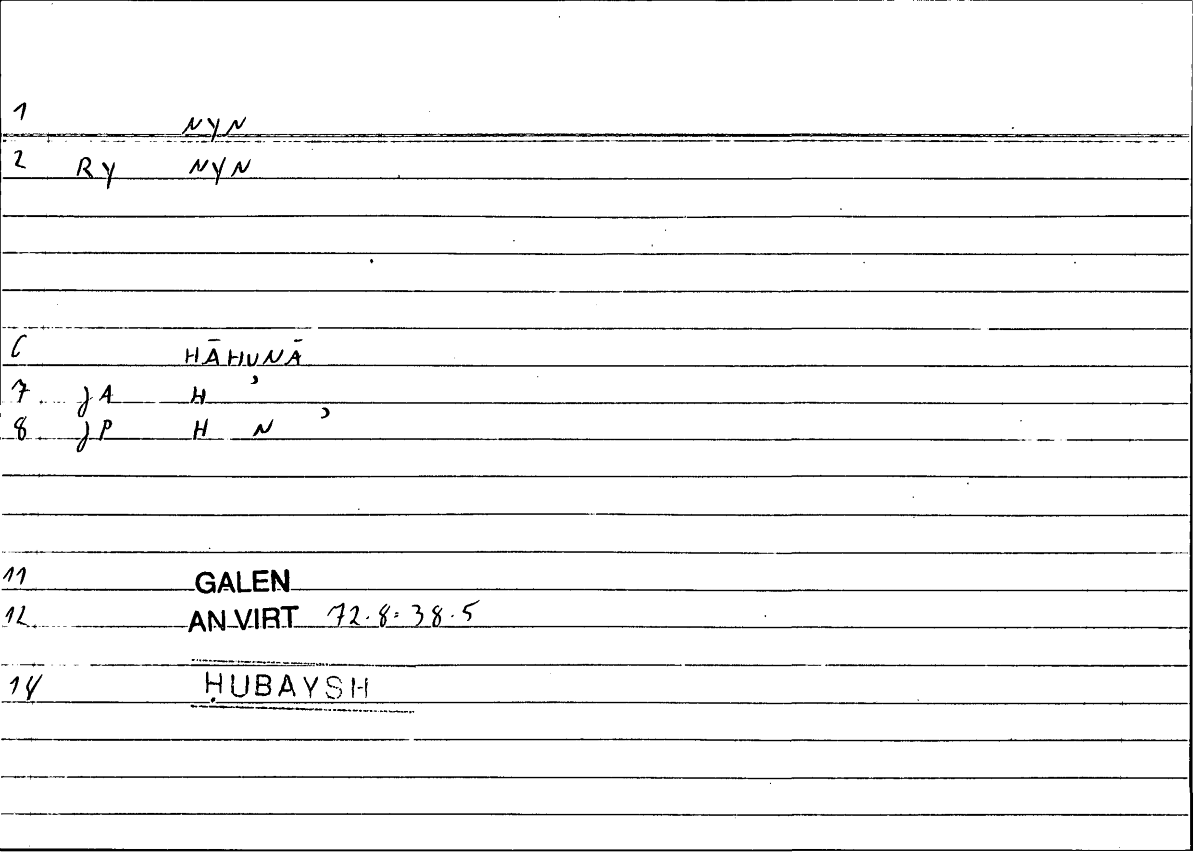 1 NYN
2 RY NYN
6 HĀHUNĀ
7 jA H ʾ
8 jP H N ʾ
11 GALEN
12 AN VIRT 72.8:38.5
14 ḤUBAYSH